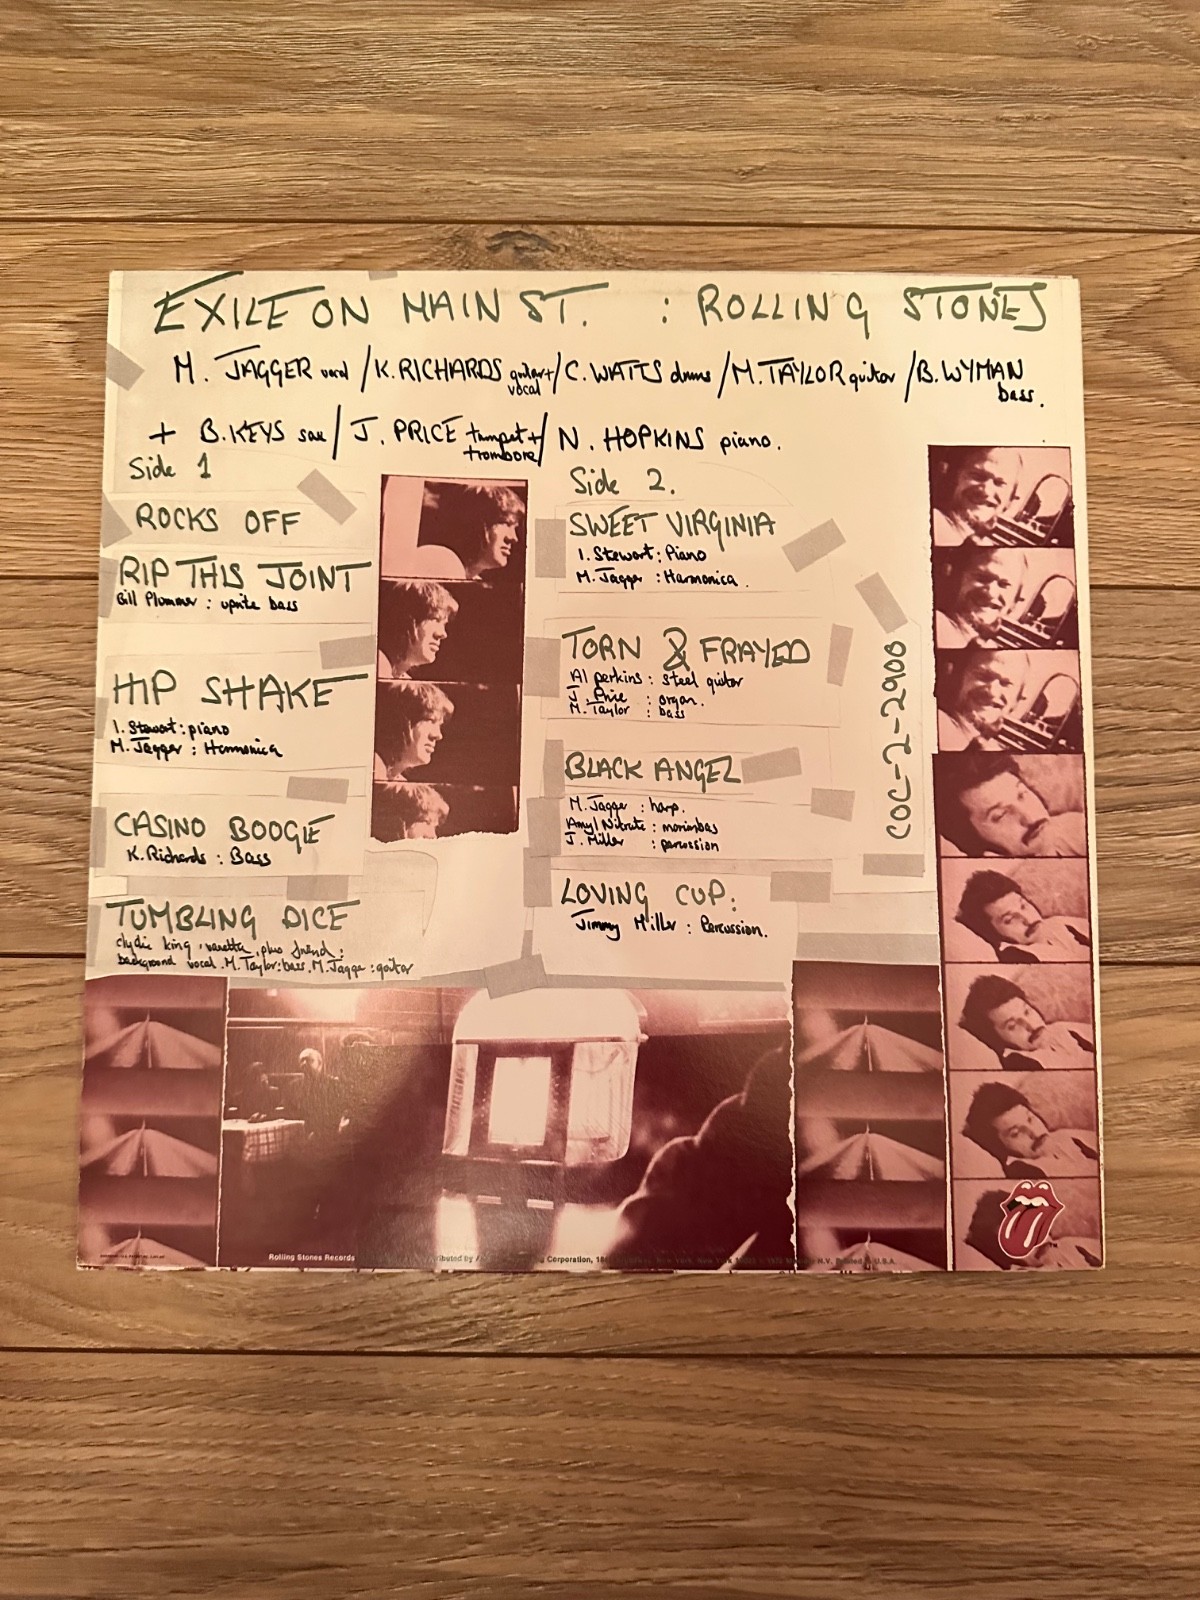 EXILE ON MAIN ST. : ROLLING STONES
M. JAGGER vocal / K. RICHARDS guitar + vocal / C. WATTS drums / M. TAYLOR guitar / B. WYMAN bass.
+ B. KEYS sax / J. PRICE trumpet + trombone / N. HOPKINS piano.
Side 1
ROCKS OFF
RIP THIS JOINT
Bill Plummer : uprite bass
HIP SHAKE
I. Stewart : piano
M. Jagger : Harmonica
CASINO BOOGIE
K. Richards : Bass
TUMBLING DICE
clydie king, vanetta, plus friend :
background vocal. M. Taylor : bass. M. Jagger : guitar
Side 2.
SWEET VIRGINIA
I. Stewart : Piano
M. Jagger : Harmonica.
TORN & FRAYED
Al perkins : steel guitar
J. Price : organ.
M. Taylor : bass
BLACK ANGEL
M. Jagger : harp.
Amyl Nitrate : marimbas
J. Miller : percussion
LOVING CUP :
Jimmy Miller : Percussion.
COC-2-2900
Rolling Stones Records
Corporation,
New York, New York
U.S.A.
TM